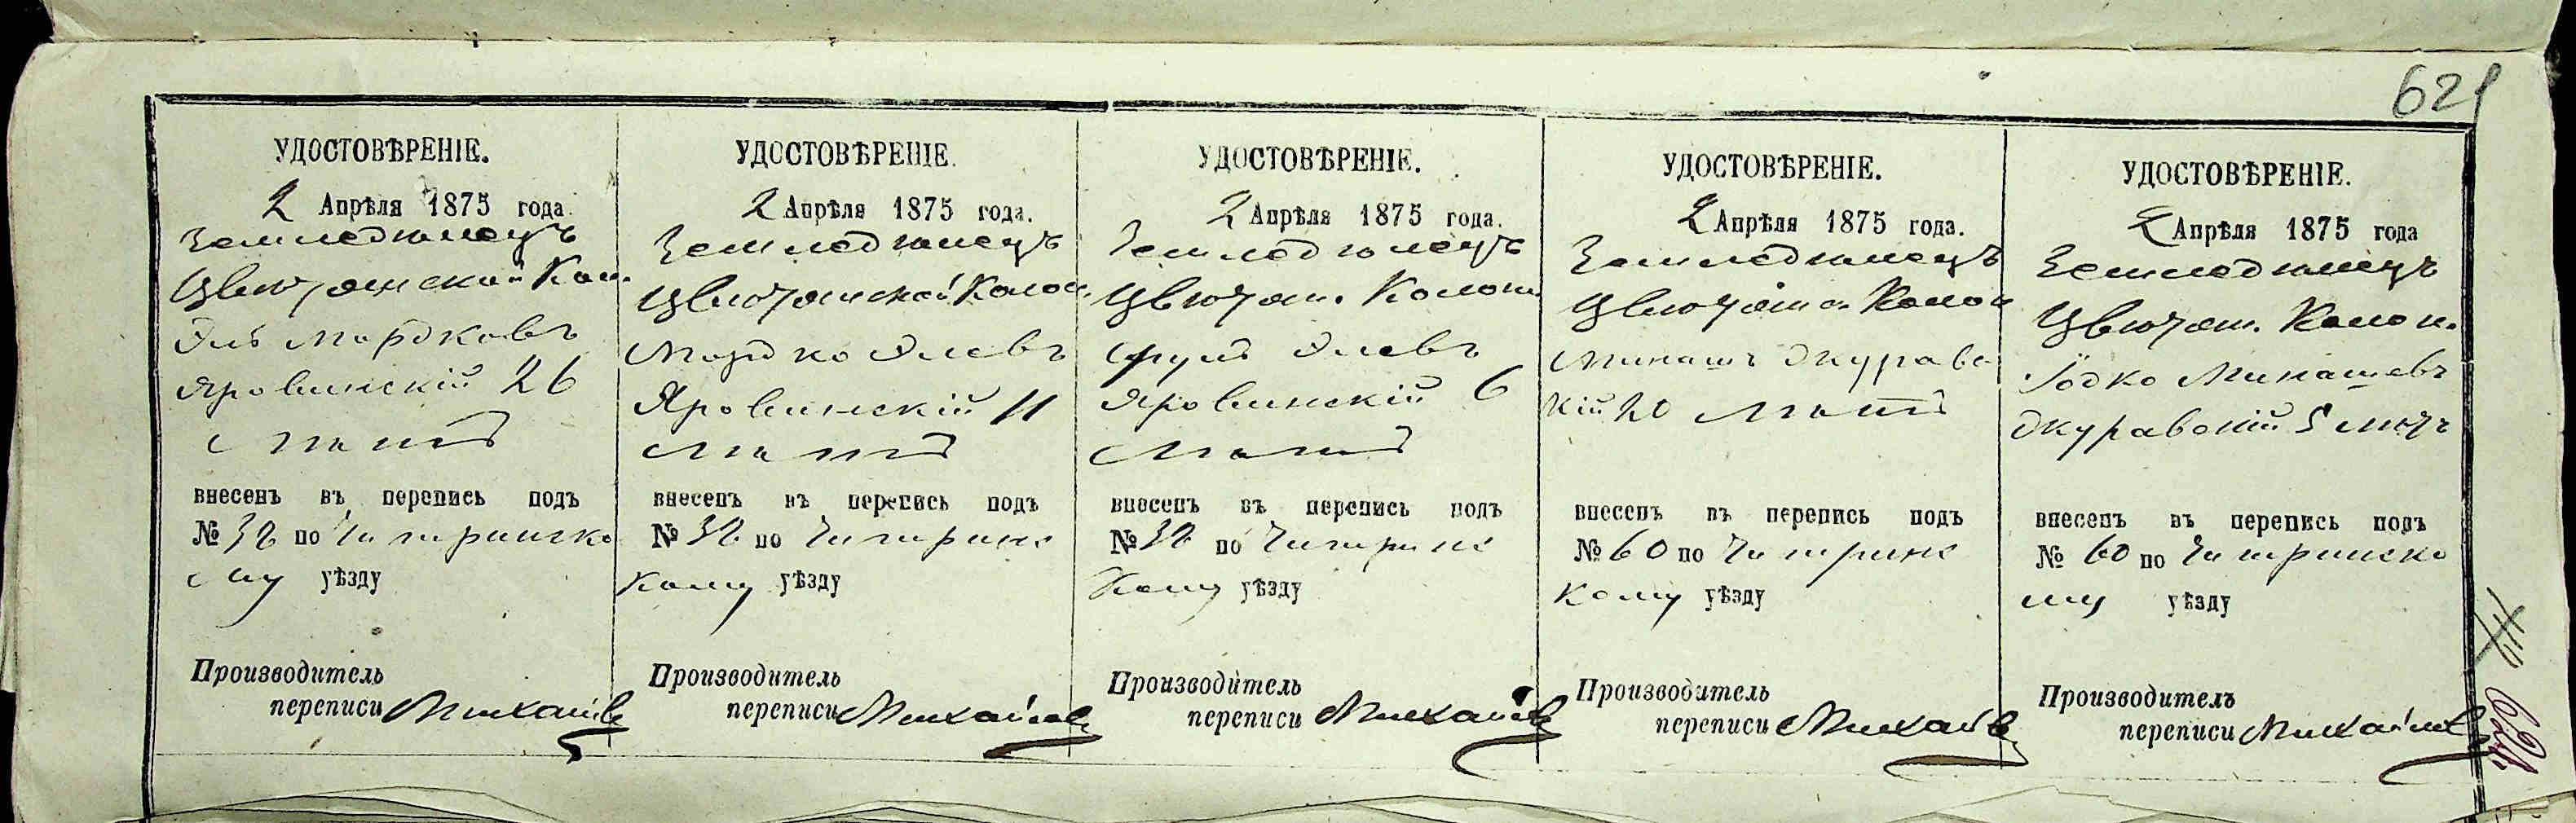 621
УДОСТОВѢРЕНІЕ.
2 Апрѣля 1875 года.
Земледѣлецъ
Цвѣтянской Кол.
Эль Мордковъ
Яровинскій 26
лѣтъ
внесенъ въ перепись подъ
№ 32 по Чигиринско
му уѣзду
Производитель
переписи Михайловъ
УДОСТОВѢРЕНІЕ.
2 Апрѣля 1875 года.
Земледѣлецъ
Цвѣтянской Колон.
Мордко Элевъ
Яровинскій 11
лѣтъ
внесенъ въ перепись подъ
№ 32 по Чигиринс
кому уѣзду
Производитель
переписи Михайловъ
УДОСТОВѢРЕНІЕ.
2 Апрѣля 1875 года.
Земледѣлецъ
Цвѣтян. Колон.
Сруль Элевъ
Яровинскій 6
лѣтъ
внесенъ въ перепись подъ
№ 32 по Чигиринс
кому уѣзду
Производитель
переписи Михайловъ
УДОСТОВѢРЕНІЕ.
2 Апрѣля 1875 года.
Земледѣлецъ
Цвѣтянск. Колон
Минашъ Джуравс
кій 20 лѣтъ
внесенъ въ перепись подъ
№ 60 по Чигиринс
кому уѣзду
Производитель
переписи Михайловъ
УДОСТОВѢРЕНІЕ.
2 Апрѣля 1875 года
Земледѣлецъ
Цвѣтян. Колон.
Іодко Минашевъ
Джуравскій 5 лѣтъ
внесенъ въ перепись подъ
№ 60 по Чигиринско
му уѣзду
Производитель
переписи Михайловъ
621